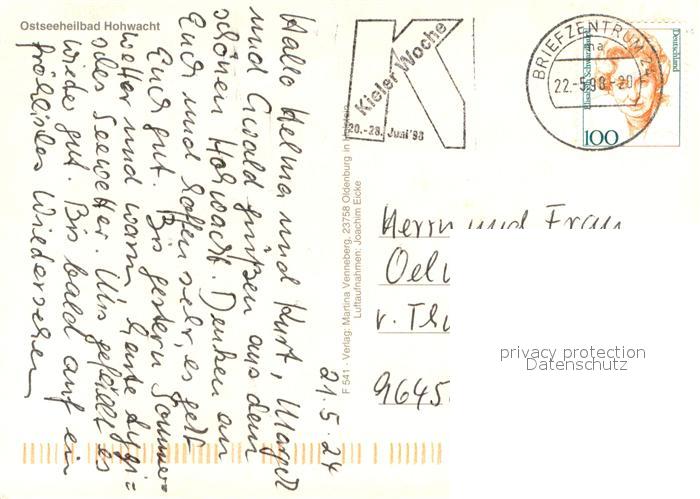 Ostseeheilbad Hohwacht
Hallo Helma und Kurt, Margott
und Ewald grüßen aus dem
schönen Hohwacht. Denken an
Euch und hoffen sehr, es geht
Euch gut. Bis gestern Sommer=
wetter und warm, heute typi=
sches Seewetter. Uns gefällt es
wieder gut. Bis bald auf ein
fröhliches Wiedersehen
21.5.24
F 541 · Verlag: Martina Venneberg, 23758 Oldenburg in Holstein
Luftaufnahmen: Joachim Eicke
Kieler Woche
20.-28. Juni '98
BRIEFZENTRUM 24
na
22.-5.98-20
Deutschland
100
Herrn und Frau
Oel
v. Thu
9645
privacy protection
Datenschutz